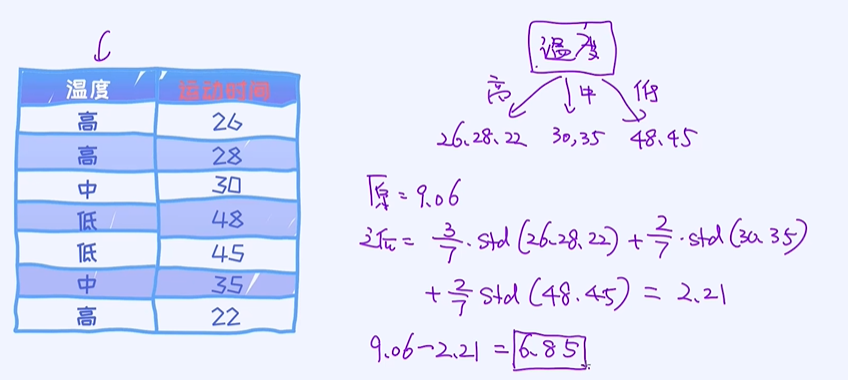 温度 运动时间
高 26
高 28
中 30
低 48
低 45
中 35
高 22
温度
高 中 低
26.28.22 30,35 48.45
原=9.06
现= 3/7·std(26.28.22)+2/7·std(30.35)
+2/7 std(48.45)=2.21
9.06-2.21=6.85